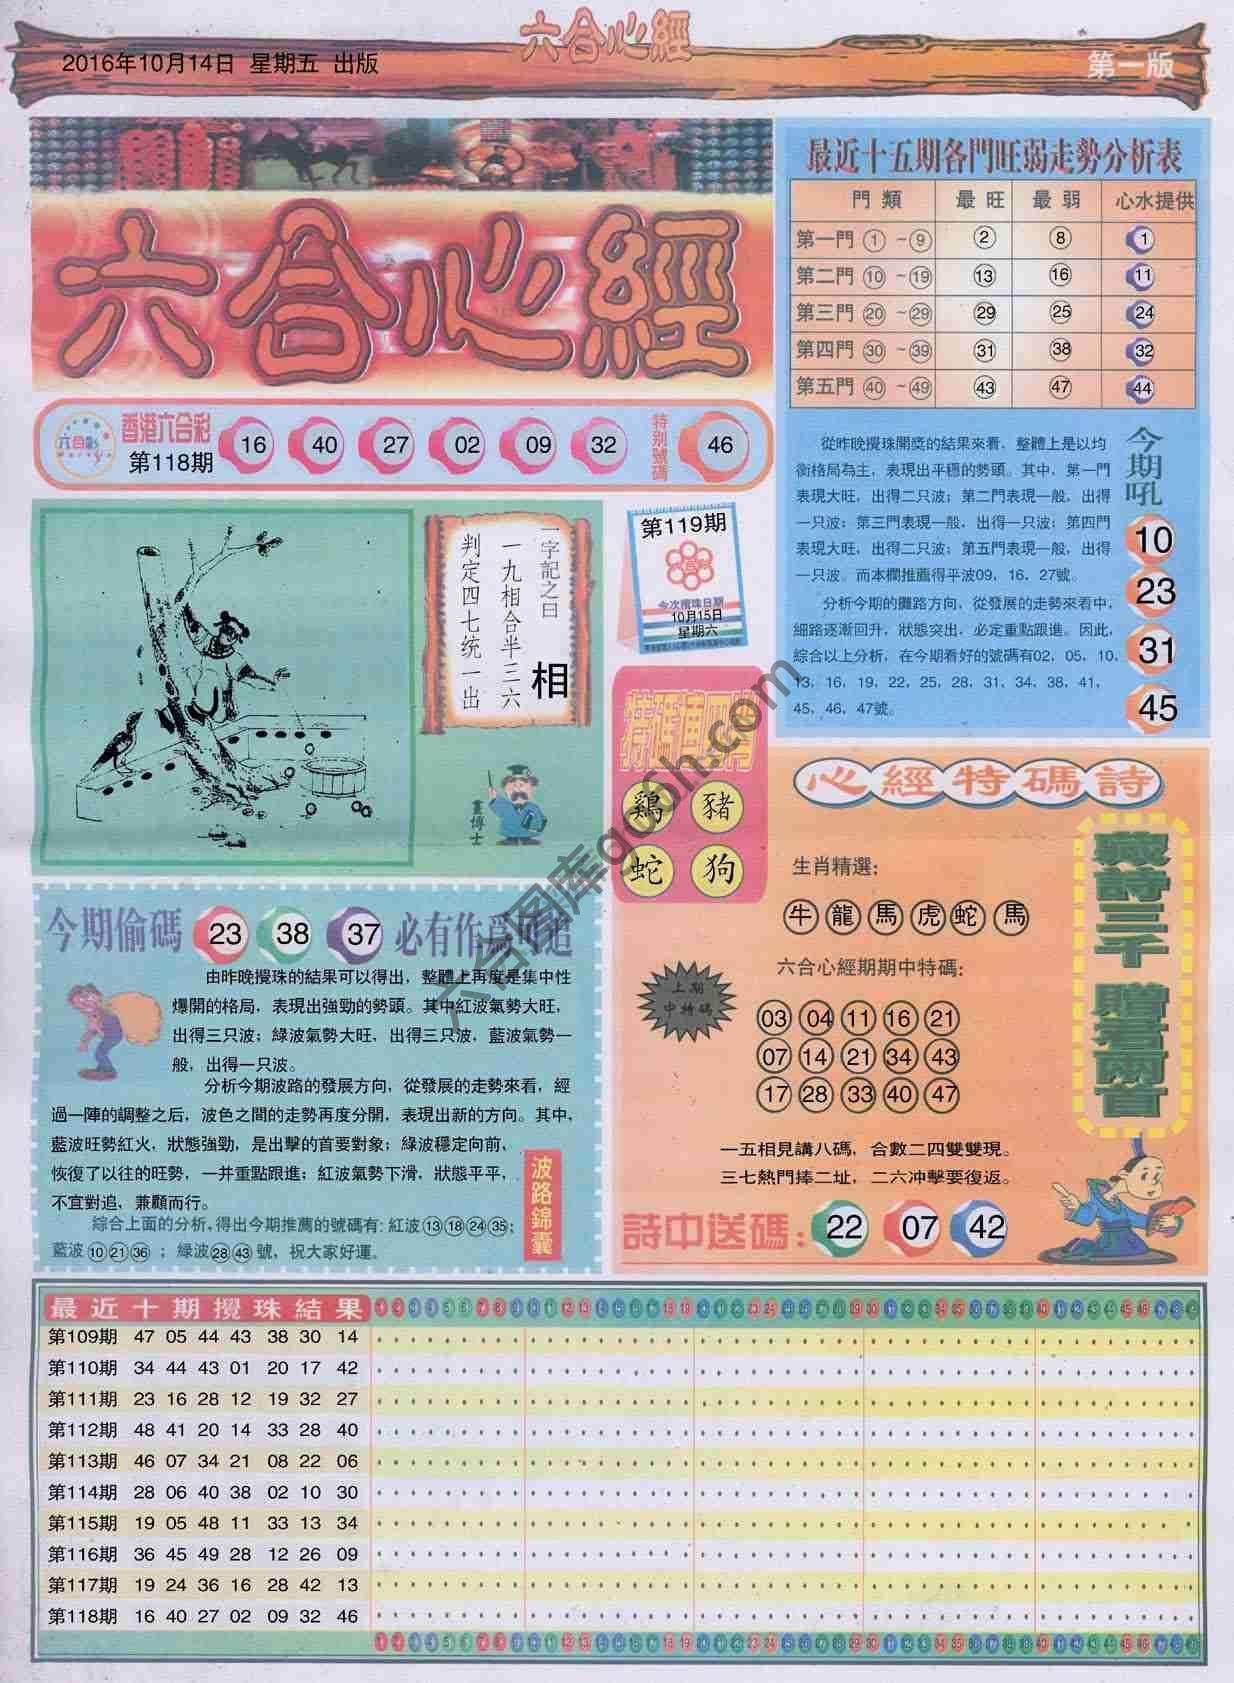 六合心經
2016年10月14日 星期五 出版
第一版
六合心經
香港六合彩
第118期
16 40 27 02 09 32
特别號碼
46
最近十五期各門旺弱走勢分析表
門類 最旺 最弱 心水提供
第一門 ①~⑨ 2 8 1
第二門 ⑩~⑲ 13 16 11
第三門 ⑳~㉙ 29 25 24
第四門 ㉚~㊴ 31 38 32
第五門 ㊵~㊾ 43 47 44
從昨晚攪珠開獎的結果來看，整體上是以均
衡格局為主，表現出平穩的勢頭。其中，第一門
表現大旺，出得二只波；第二門表現一般，出得
一只波；第三門表現一般，出得一只波；第四門
表現大旺，出得二只波；第五門表現一般，出得
一只波。而本欄推薦得平波09，16，27號。
分析今期的攤路方向，從發展的走勢來看中，
細路逐漸回升，狀態突出，必定重點跟進。因此，
綜合以上分析，在今期看好的號碼有02，05，10，
13，16，19，22，25，28，31，34，38，41，
45，46，47號。
今期吼
10
23
31
45
一字記之曰
相
一九相合半三六
判定四七统一出
畫博士
第119期
六合彩
今次攪珠日期
10月15日
星期六
特碼博四肖
鷄 豬
蛇 狗
心經特碼詩
生肖精選：
牛 龍 馬 虎 蛇 馬
六合心經期期中特碼：
上期
中特碼
03 04 11 16 21
07 14 21 34 43
17 28 33 40 47
一五相見講八碼，合數二四雙雙現。
三七熱門捧二址，二六冲擊要復返。
詩中送碼： 22 07 42
藏詩三千 贈君兩首
今期偷碼 23 38 37 必有作爲可追
由昨晚攪珠的結果可以得出，整體上再度是集中性
爆開的格局，表現出強勁的勢頭。其中紅波氣勢大旺，
出得三只波；綠波氣勢大旺，出得三只波，藍波氣勢一
般，出得一只波。
分析今期波路的發展方向，從發展的走勢來看，經
過一陣的調整之后，波色之間的走勢再度分開，表現出新的方向。其中，
藍波旺勢紅火，狀態強勁，是出擊的首要對象；綠波穩定向前，
恢復了以往的旺勢，一并重點跟進；紅波氣勢下滑，狀態平平，
不宜對追，兼顧而行。
綜合上面的分析，得出今期推薦的號碼有：紅波⑬⑱㉔㉟；
藍波⑩㉑㊱；綠波㉘㊸號，祝大家好運。
波路錦囊
六合图库gd6h.com
最近十期攪珠結果
第109期 47 05 44 43 38 30 14
第110期 34 44 43 01 20 17 42
第111期 23 16 28 12 19 32 27
第112期 48 41 20 14 33 28 40
第113期 46 07 34 21 08 22 06
第114期 28 06 40 38 02 10 30
第115期 19 05 48 11 33 13 34
第116期 36 45 49 28 12 26 09
第117期 19 24 36 16 28 42 13
第118期 16 40 27 02 09 32 46